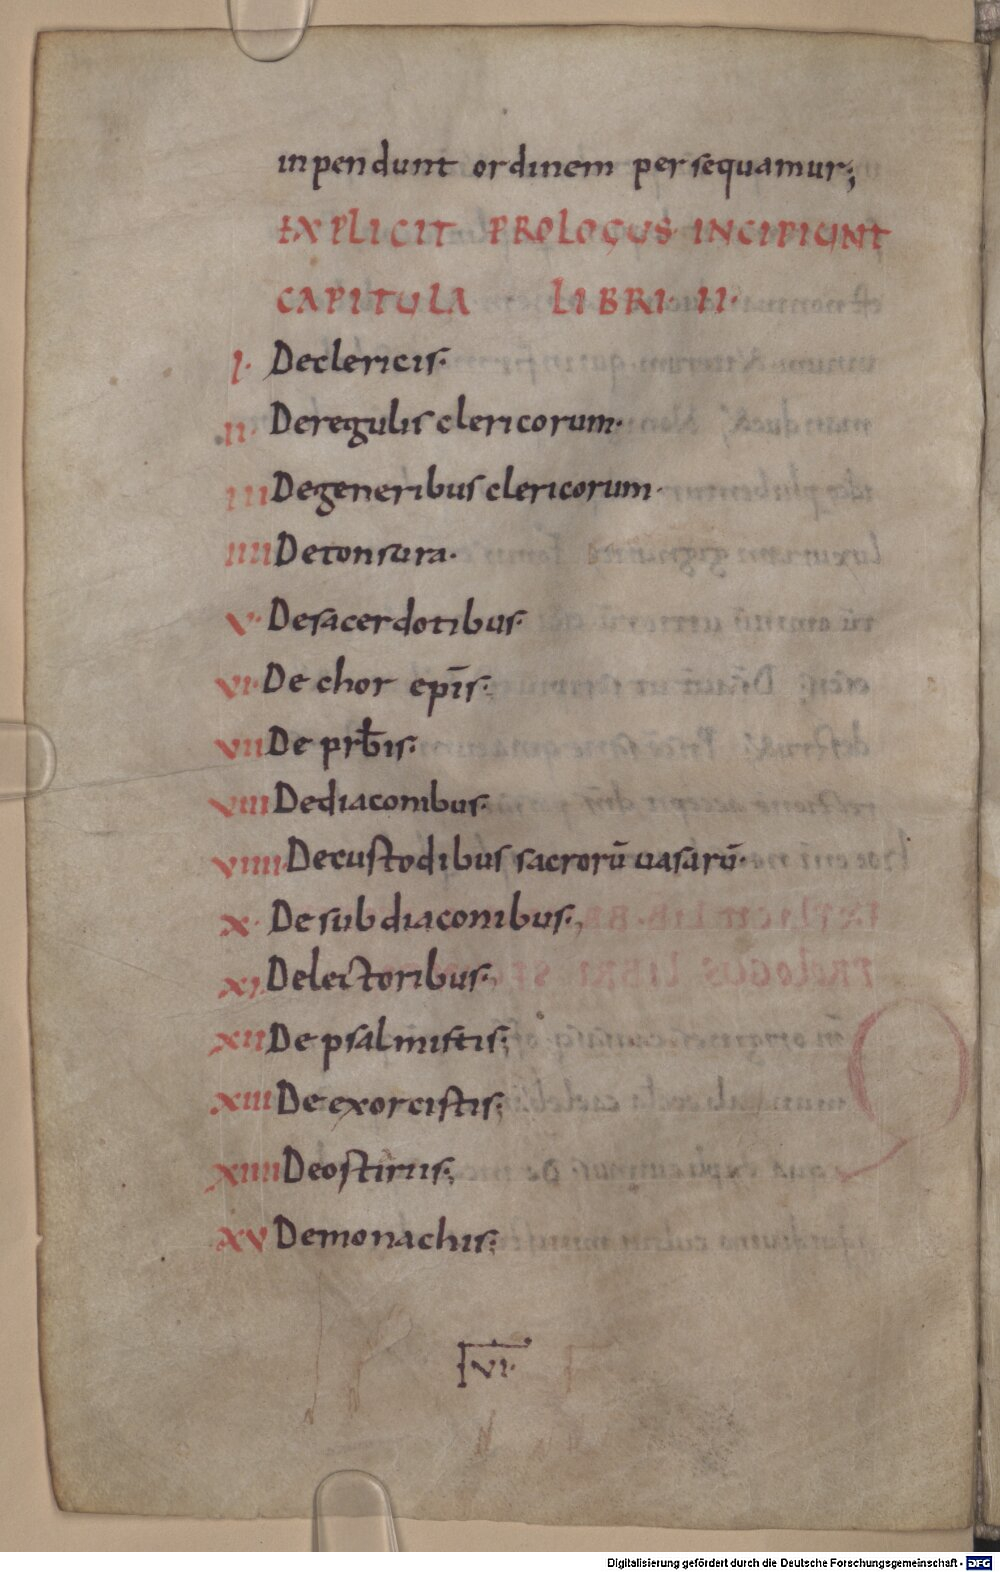 inpendunt ordinem persequamur;
EXPLICIT PROLOGUS INCIPIUNT
CAPITULA LIBRI II·
I· Declericis·
II· Deregulis clericorum·
III Degeneribus clericorum·
IIII Detonsura·
V· Desacerdotibus·
VI· De chor epīs·
VII De prb̄is·
VIII Dediaconibus·
VIIII· Decustodibus sacrorū uasarū·
X· De subdiaconibus·,
XI· Delectoribus·
XII De psalmistis;
XIII De exorcistis;
XIIII Deostiriis;
XV Demonachis;
VI·
Digitalisierung gefördert durch die Deutsche Forschungsgemeinschaft - DFG